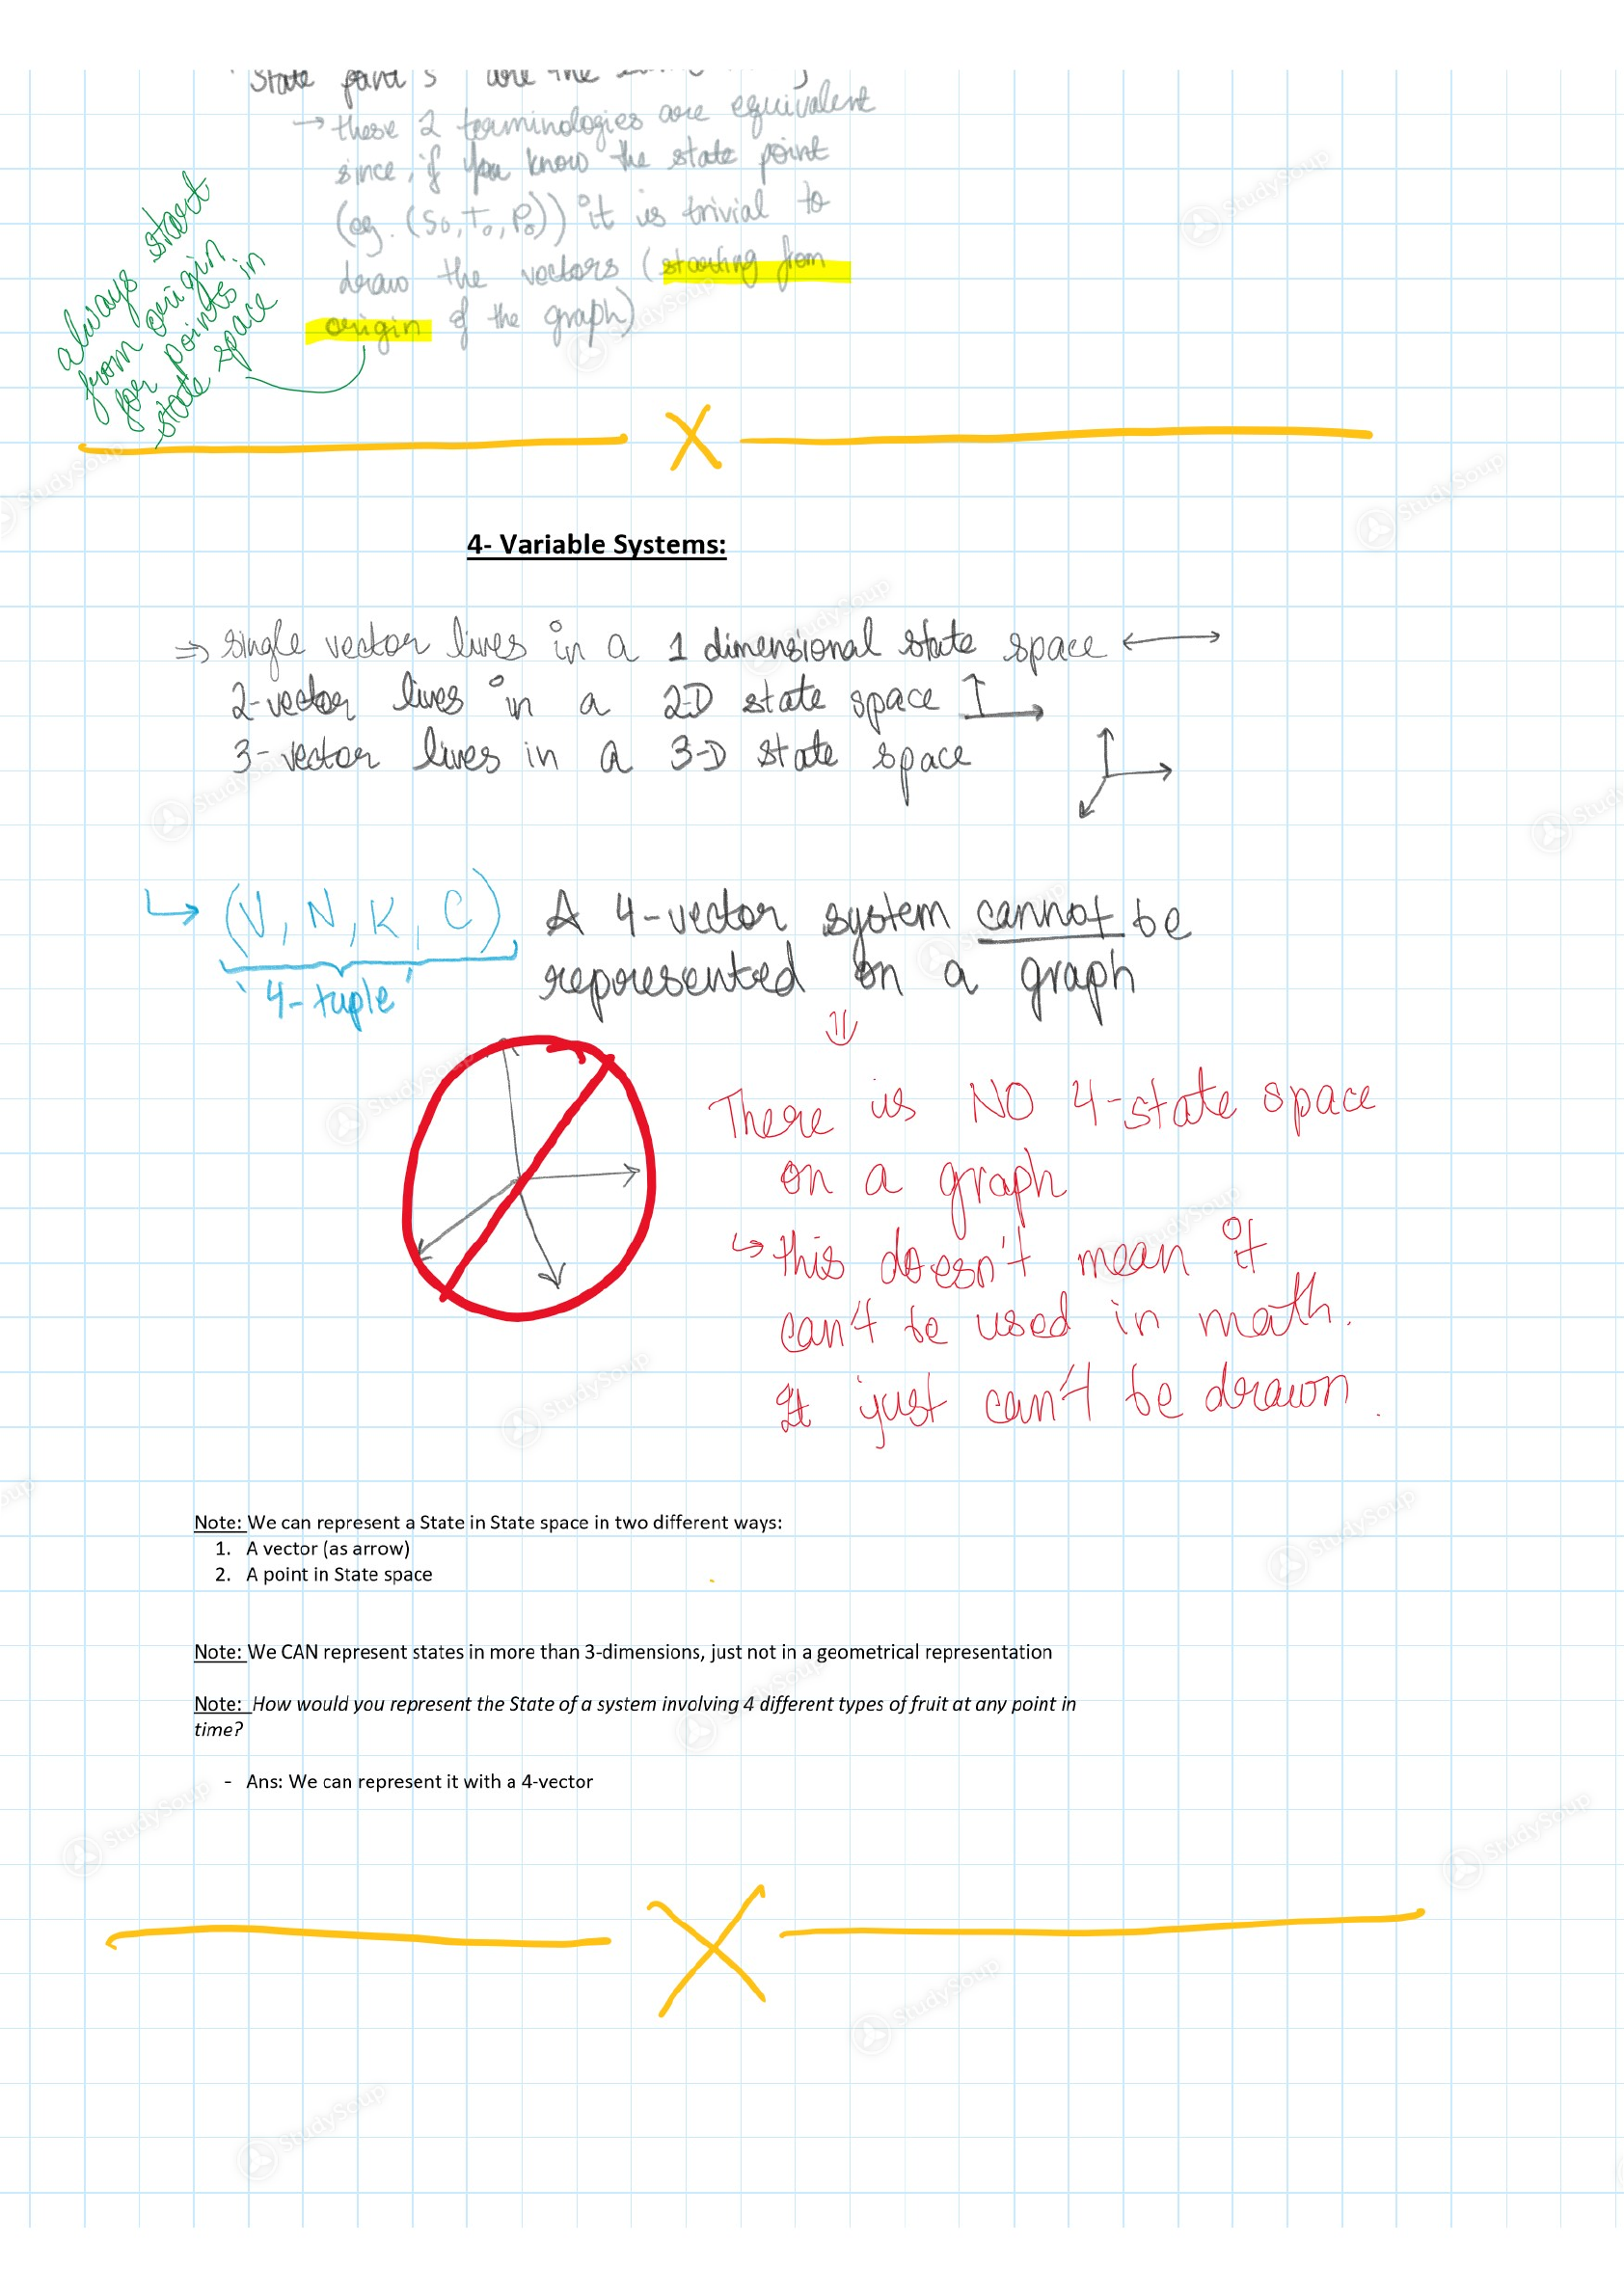 State are the
→ these 2 terminologies are equivalent
since, if you know the state point
(eg. (S₀, T₀, P₀)) it is trivial to
draw the vectors (starting from
origin of the graph)
always start
from origin
for points in
state space
4- Variable Systems:
⇒ single vector lives in a 1 dimensional state space
2-vector lives in a 2-D state space
3-vector lives in a 3-D state space
↳ (V, N, K, C) A 4-vector system cannot be
"4-tuple" represented on a graph
⇓
There is NO 4-state space
on a graph
↳ this doesn't mean it
can't be used in math.
It just can't be drawn.
Note: We can represent a State in State space in two different ways:
1. A vector (as arrow)
2. A point in State space
Note: We CAN represent states in more than 3-dimensions, just not in a geometrical representation
Note: How would you represent the State of a system involving 4 different types of fruit at any point in
time?
- Ans: We can represent it with a 4-vector
StudySoup